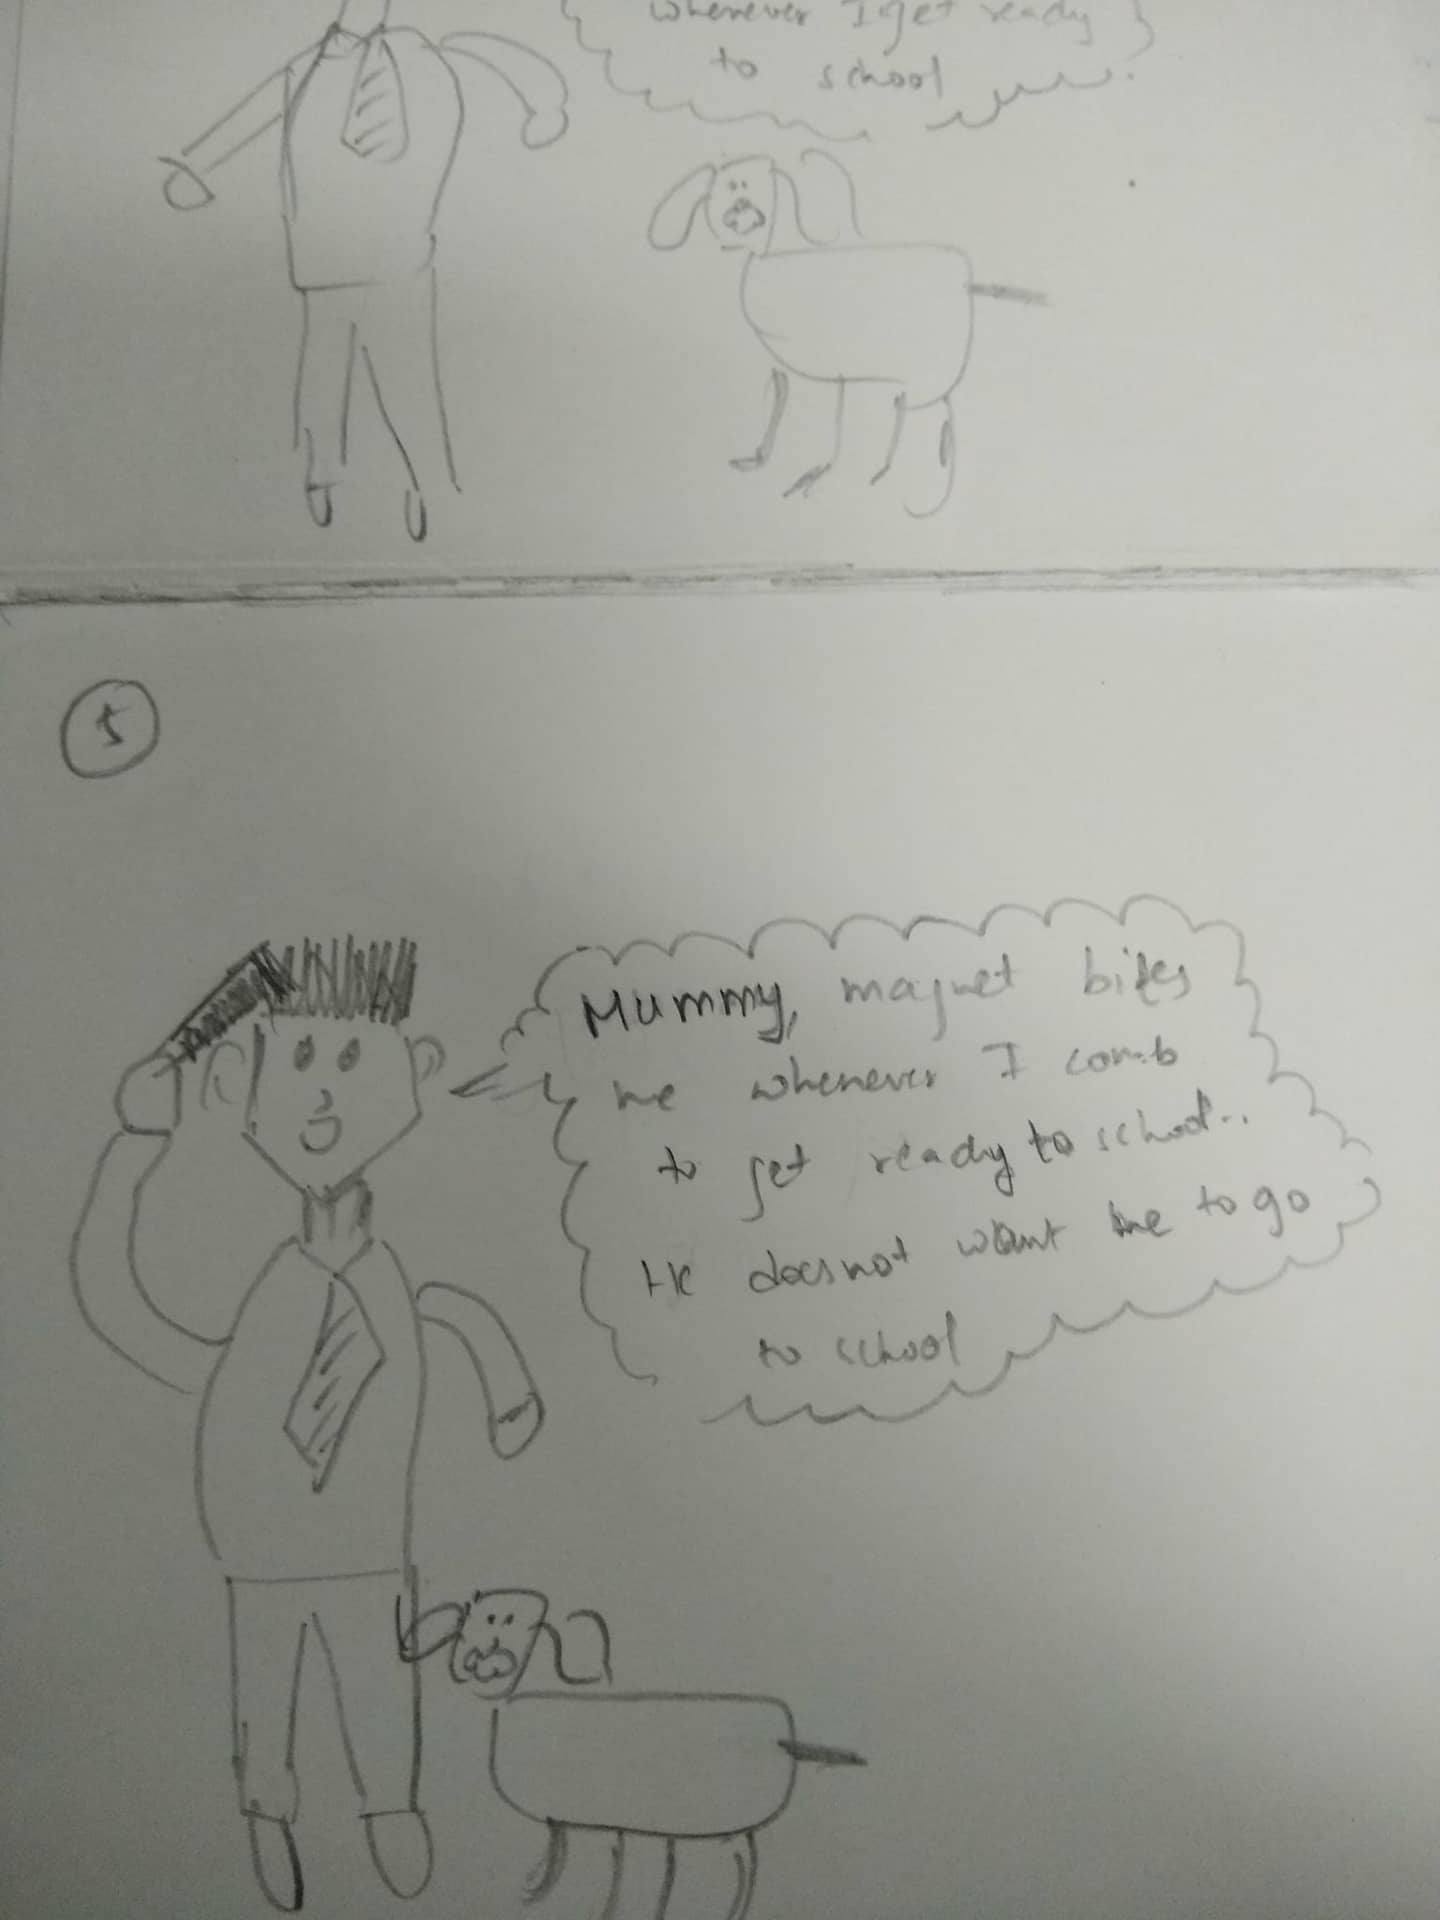 whenever I get ready
to school
5
Mummy, magnet bites
me whenever I comb
to get ready to school..
He does not want me to go
to school